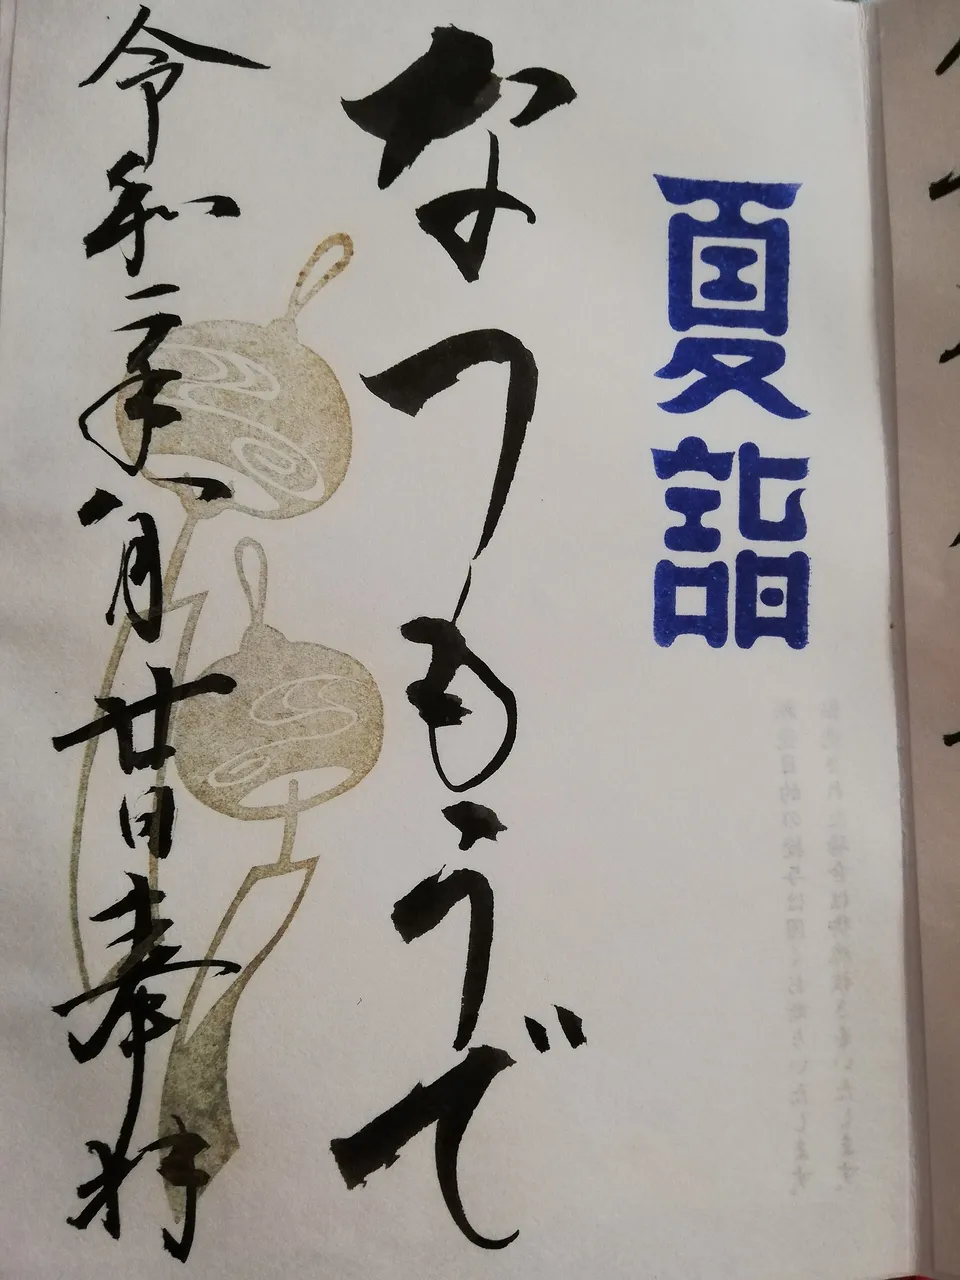 夏詣
なつもうで
令和二年八月廿日奉拝